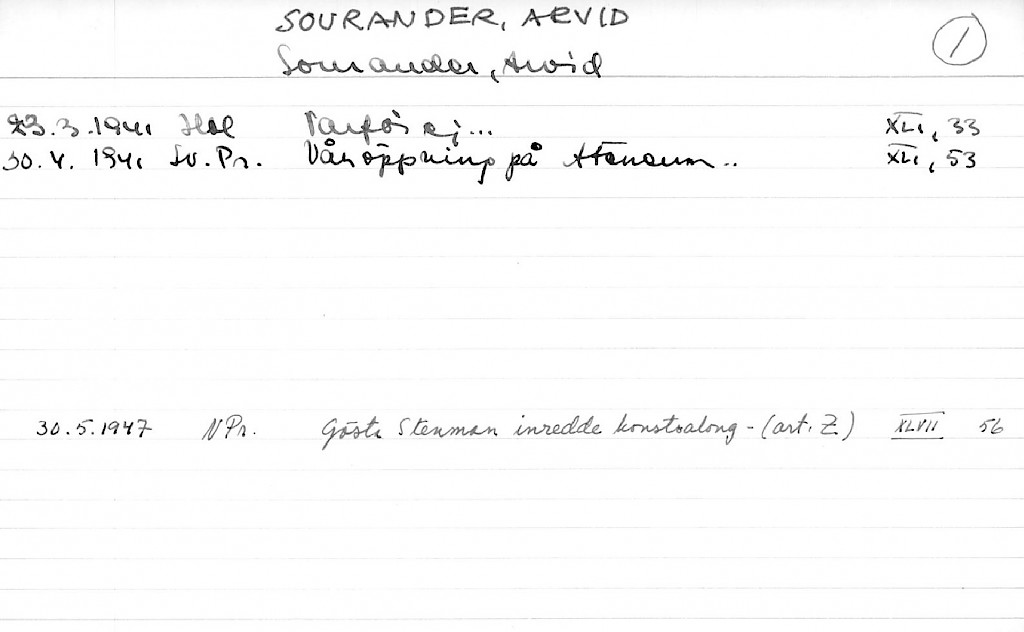 SOURANDER, ARVID
①
Sourander, Arvid
23.3.1941 Hbl Varför ej... XLI, 33
30.4.1941 Sv.Pr. Våröppning på Ateneum.. XLI, 53
30.5.1947 NPr. Gösta Stenman inredde konstsalong - (art. Z) XLVII 56